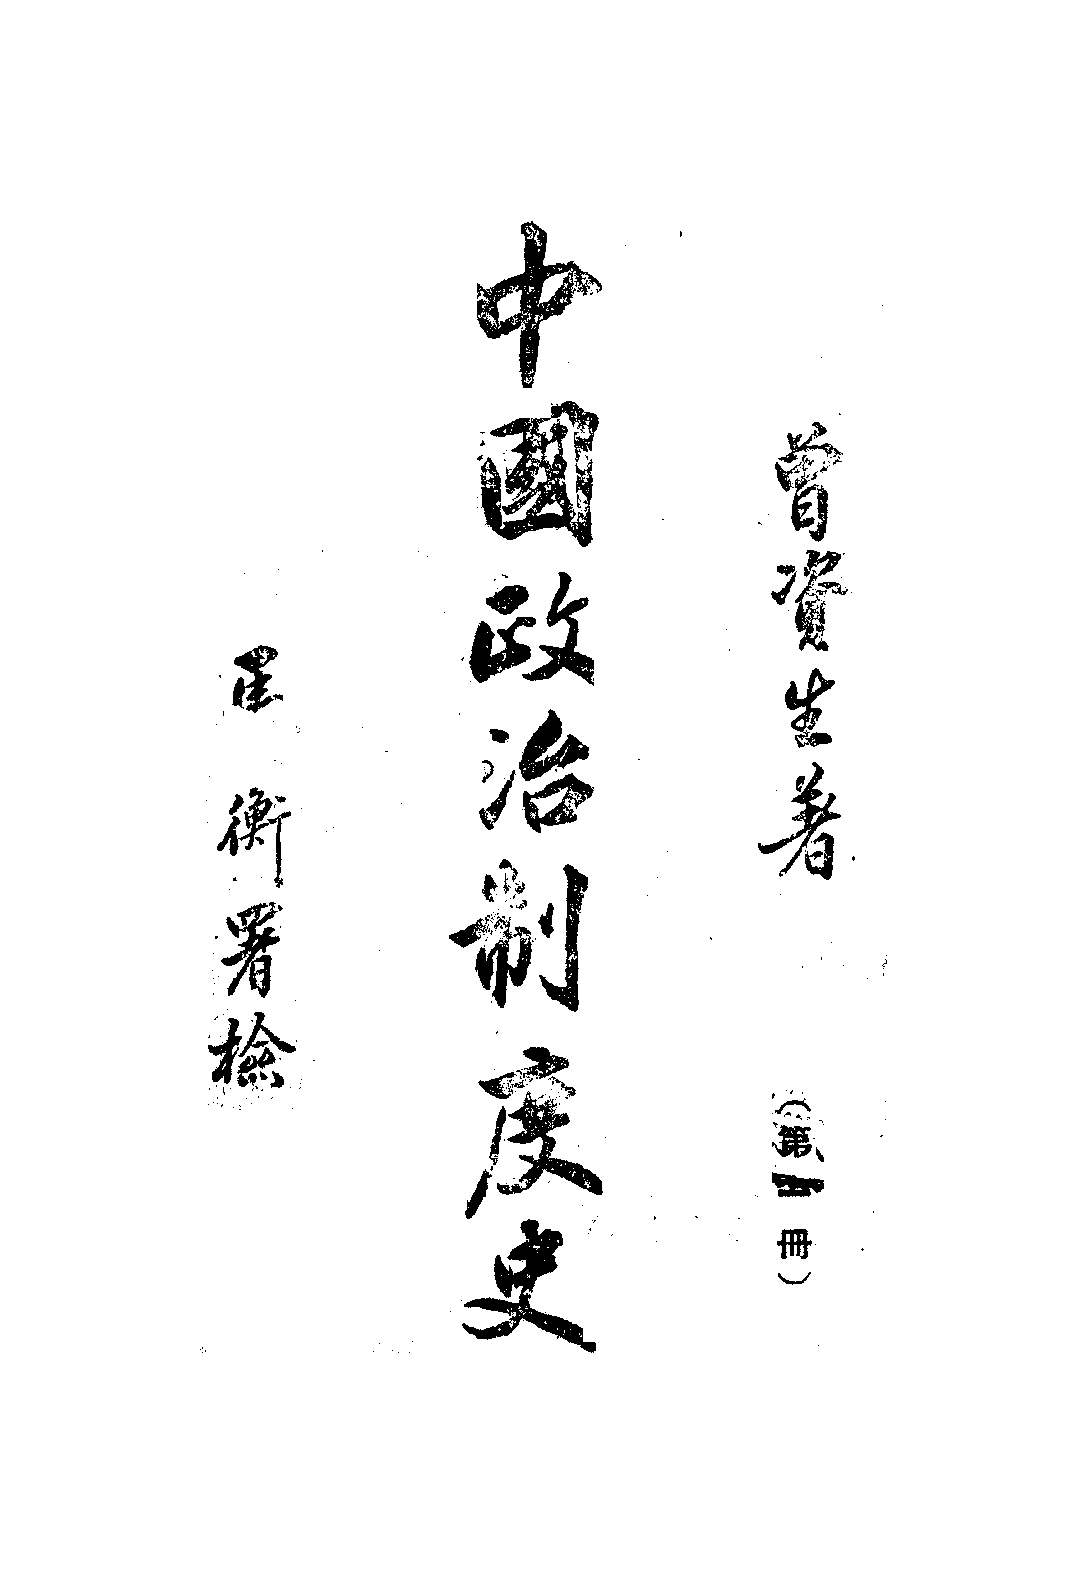 曾資生著
（第 冊）
中國政治制度史
衡署檢